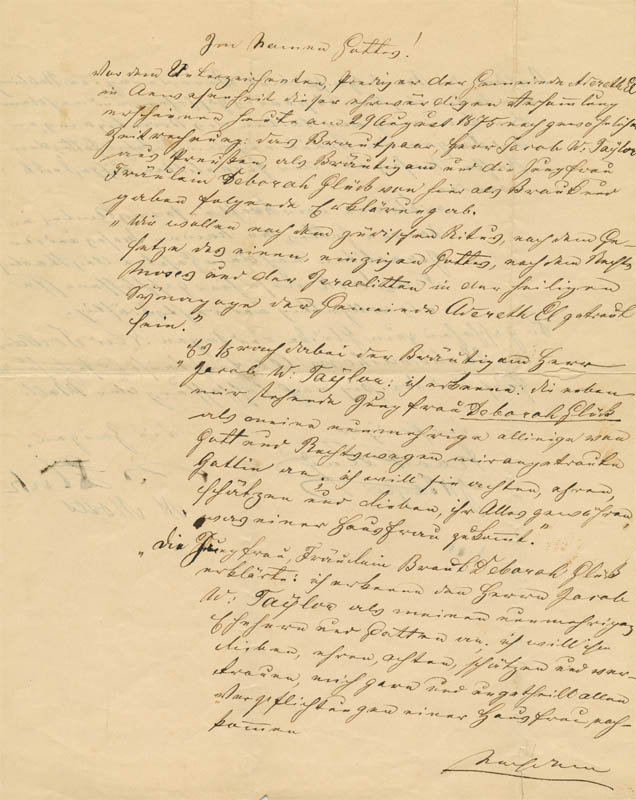 Im Namen Gottes!
Vor dem Unterzeichneten, Prediger der Gemeinde Adereth El
in Anwesenheit dieser ehrwürdigen Versammlung
erschienen heute am 29 August 1875 nach gewöhnlicher
Zeitrechnung: das Brautpaar, Herr Jacob W. Taÿlor
aus Preußen als Bräutigam und die Jungfrau
Fräulein Deborah Glück von hier als Braut und
gaben folgende Erklärung ab.
„Wir wollen nach dem jüdischen Ritus, nach dem Ge-
setze des einen, einzigen Gottes, nach dem Rechte
Moses und der Israeliten in der heiligen
Synagoge der Gemeinde Adereth El getraut
sein.“
Es sprach dabei der Bräutigam Herr
„Jacob W. Taÿlor: ich erkenne: die neben
mir stehende Jungfrau Deborah Glück
als meine nunmehrige alleinige von
Gott und Rechtswegen mir angetraute
Gattin an; ich will sie achten, ehren,
schätzen und lieben, ihr Alles gewähren,
was einer Hausfrau zukommt.“
„Die Jungfrau, Fräulein Braut Deborah Glück
erklärte: ich erkenne den Herrn Jacob
W. Taÿlor als meinen nunmehrigen
Eheherrn und Gatten an; ich will ihn
lieben, ehren, achten, schätzen und ver-
trauen, mich gern und ungetheilt allen
Verpflichtungen einer Hausfrau nach-
kommen
Nachdem